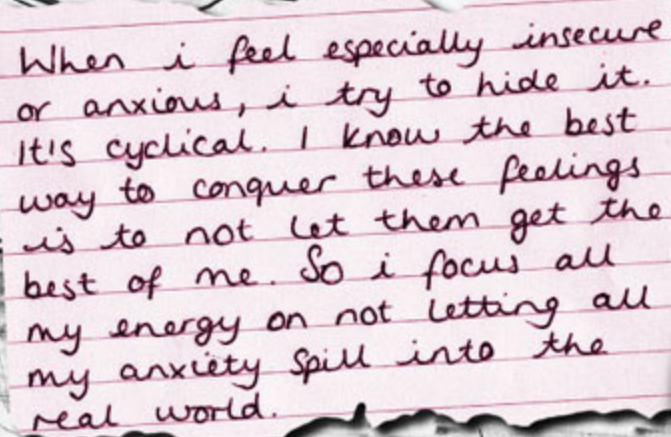 When i feel especially insecure
or anxious, i try to hide it.
It's cyclical. I know the best
way to conquer these feelings
is to not let them get the
best of me. So i focus all
my energy on not letting all
my anxiety spill into the
real world.